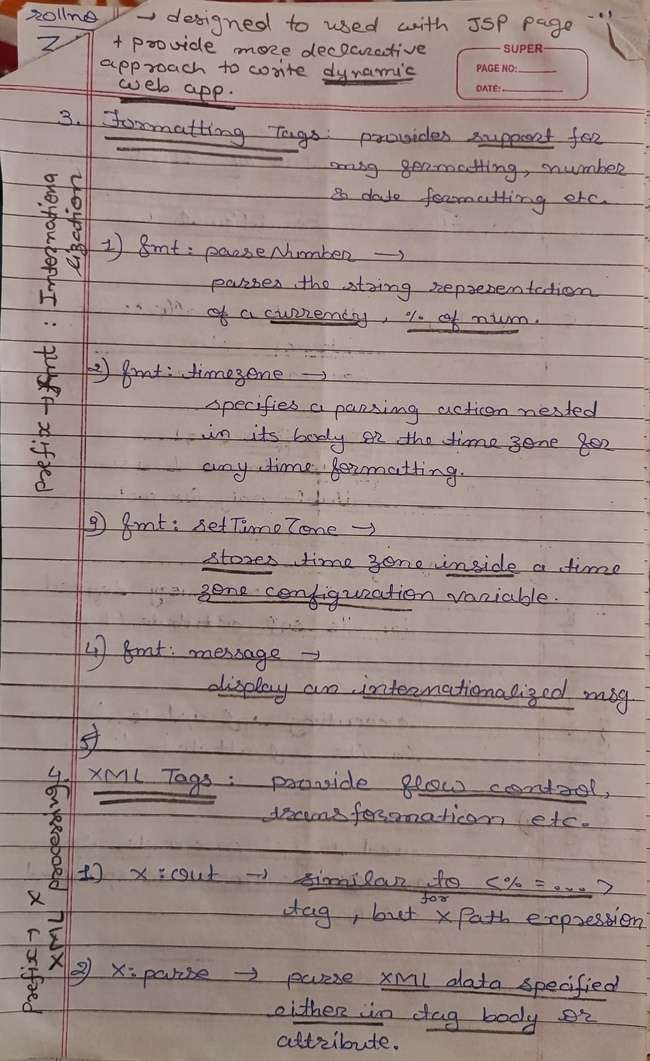 rollno
Z
→ designed to used with JSP page
+ provide more declarative
approach to write dynamic
web app.
SUPER
PAGE NO:
DATE:
3. Formatting Tags: provides support for
msg formatting, number
& date formatting etc.
prefix → fmt : Internationa
lization
1) fmt: parseNumber →
parses the string representation
of a currency, % of num.
2) fmt: timezone →
specifies a parsing action nested
in its body or the time zone for
any time formatting.
3) fmt: setTimeZone →
stores time zone inside a time
zone configuration variable.
4) fmt: message →
display an internationalized msg
5)
4. XML Tags: provide flow control,
transformation etc.
prefix → x
XML processing
1) x:out → similar to <%=...>
tag, but for XPath expression
2) x:parse → parse XML data specified
either in tag body or
attribute.